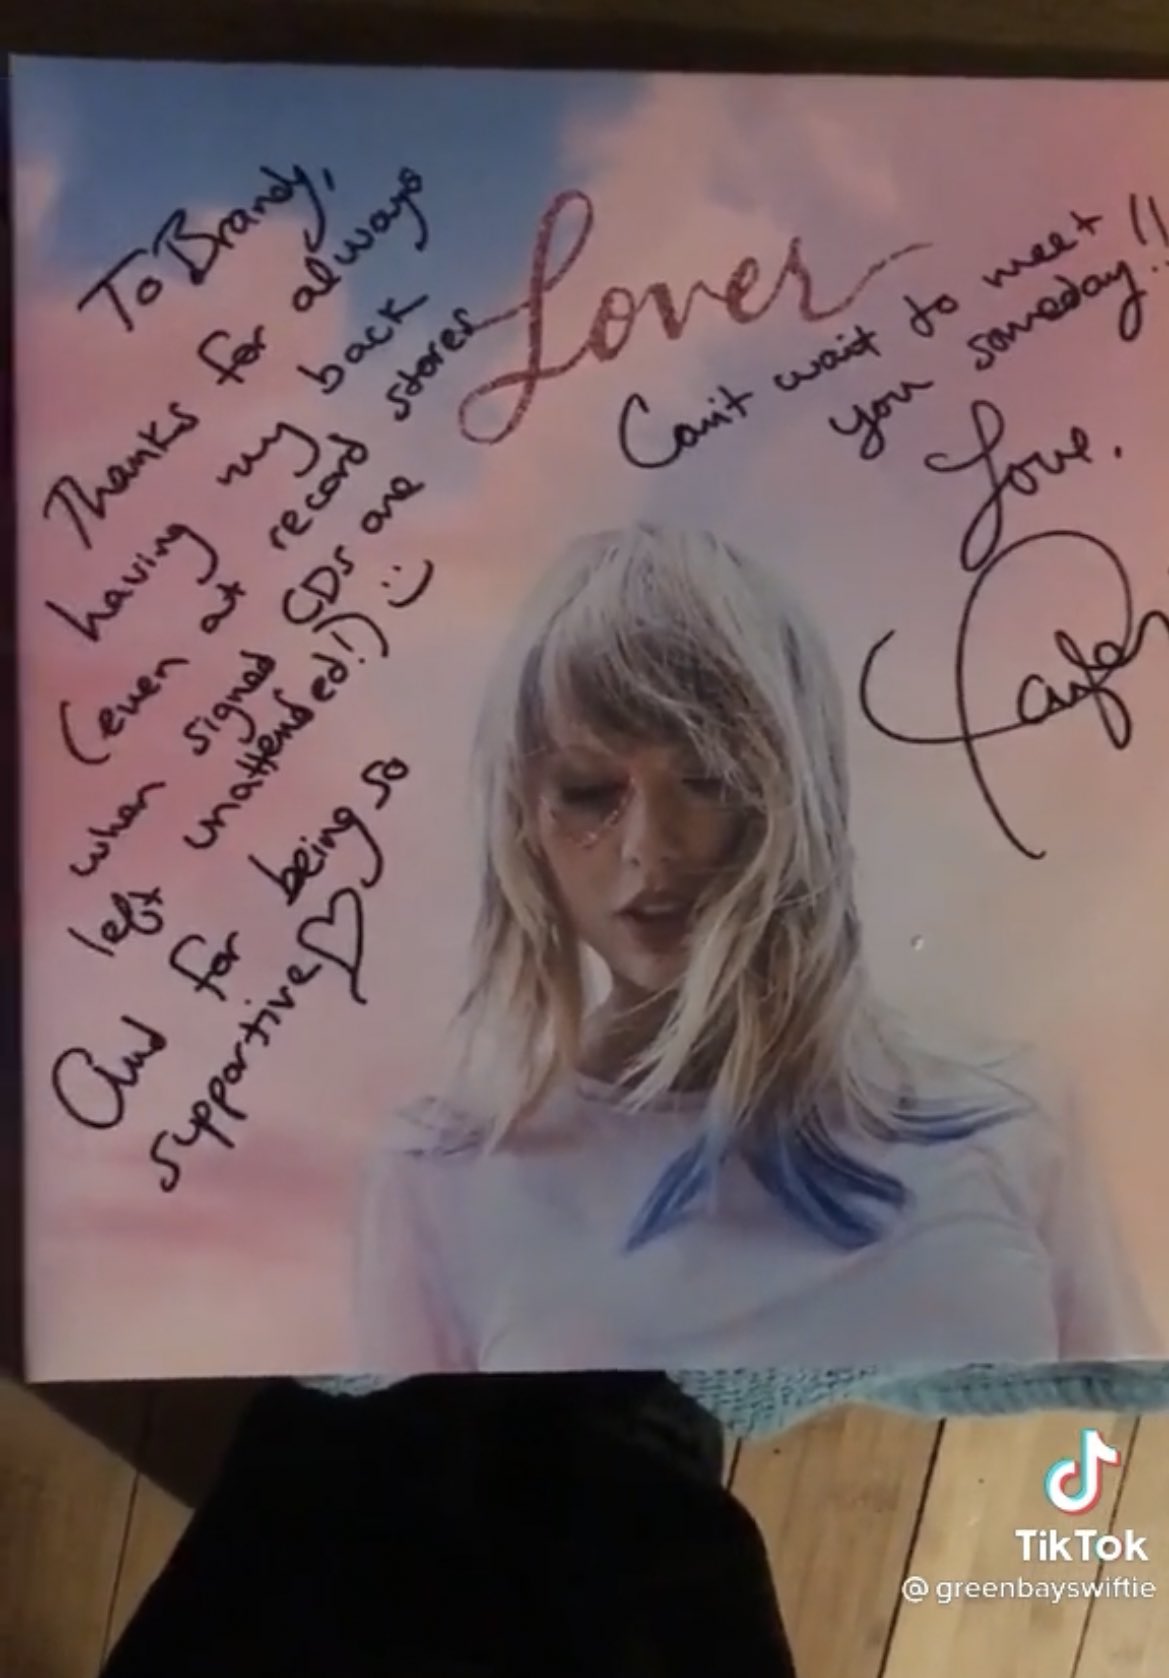 To Brandy,
Thanks for always
having my back
(even at record stores
when signed CDs are
left unattended!) :)
And for being so
supportive♡
Lover
Can't wait to meet
you someday!!
Love,
Taylor
TikTok
@greenbayswiftie